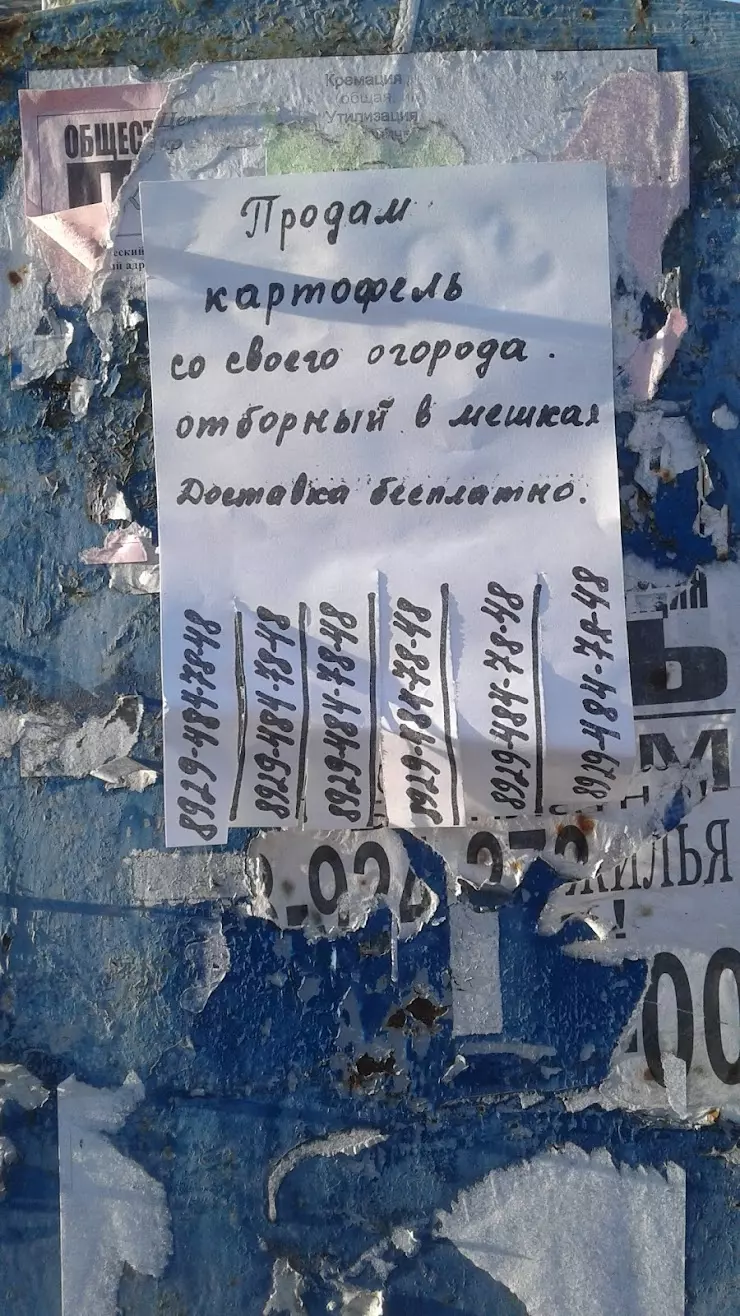 Кремация
общая, и
Утилизация
ОБЩЕС
Продам
картофель
со своего огорода.
отборный в мешках
Доставка бесплатно.
8929-484-78-48
8929-484-78-48
8929-484-78-48
8929-484-78-48
8929-484-78-48
8929-484-78-48
Ь
М
ЖИЛЬЯ
!
00